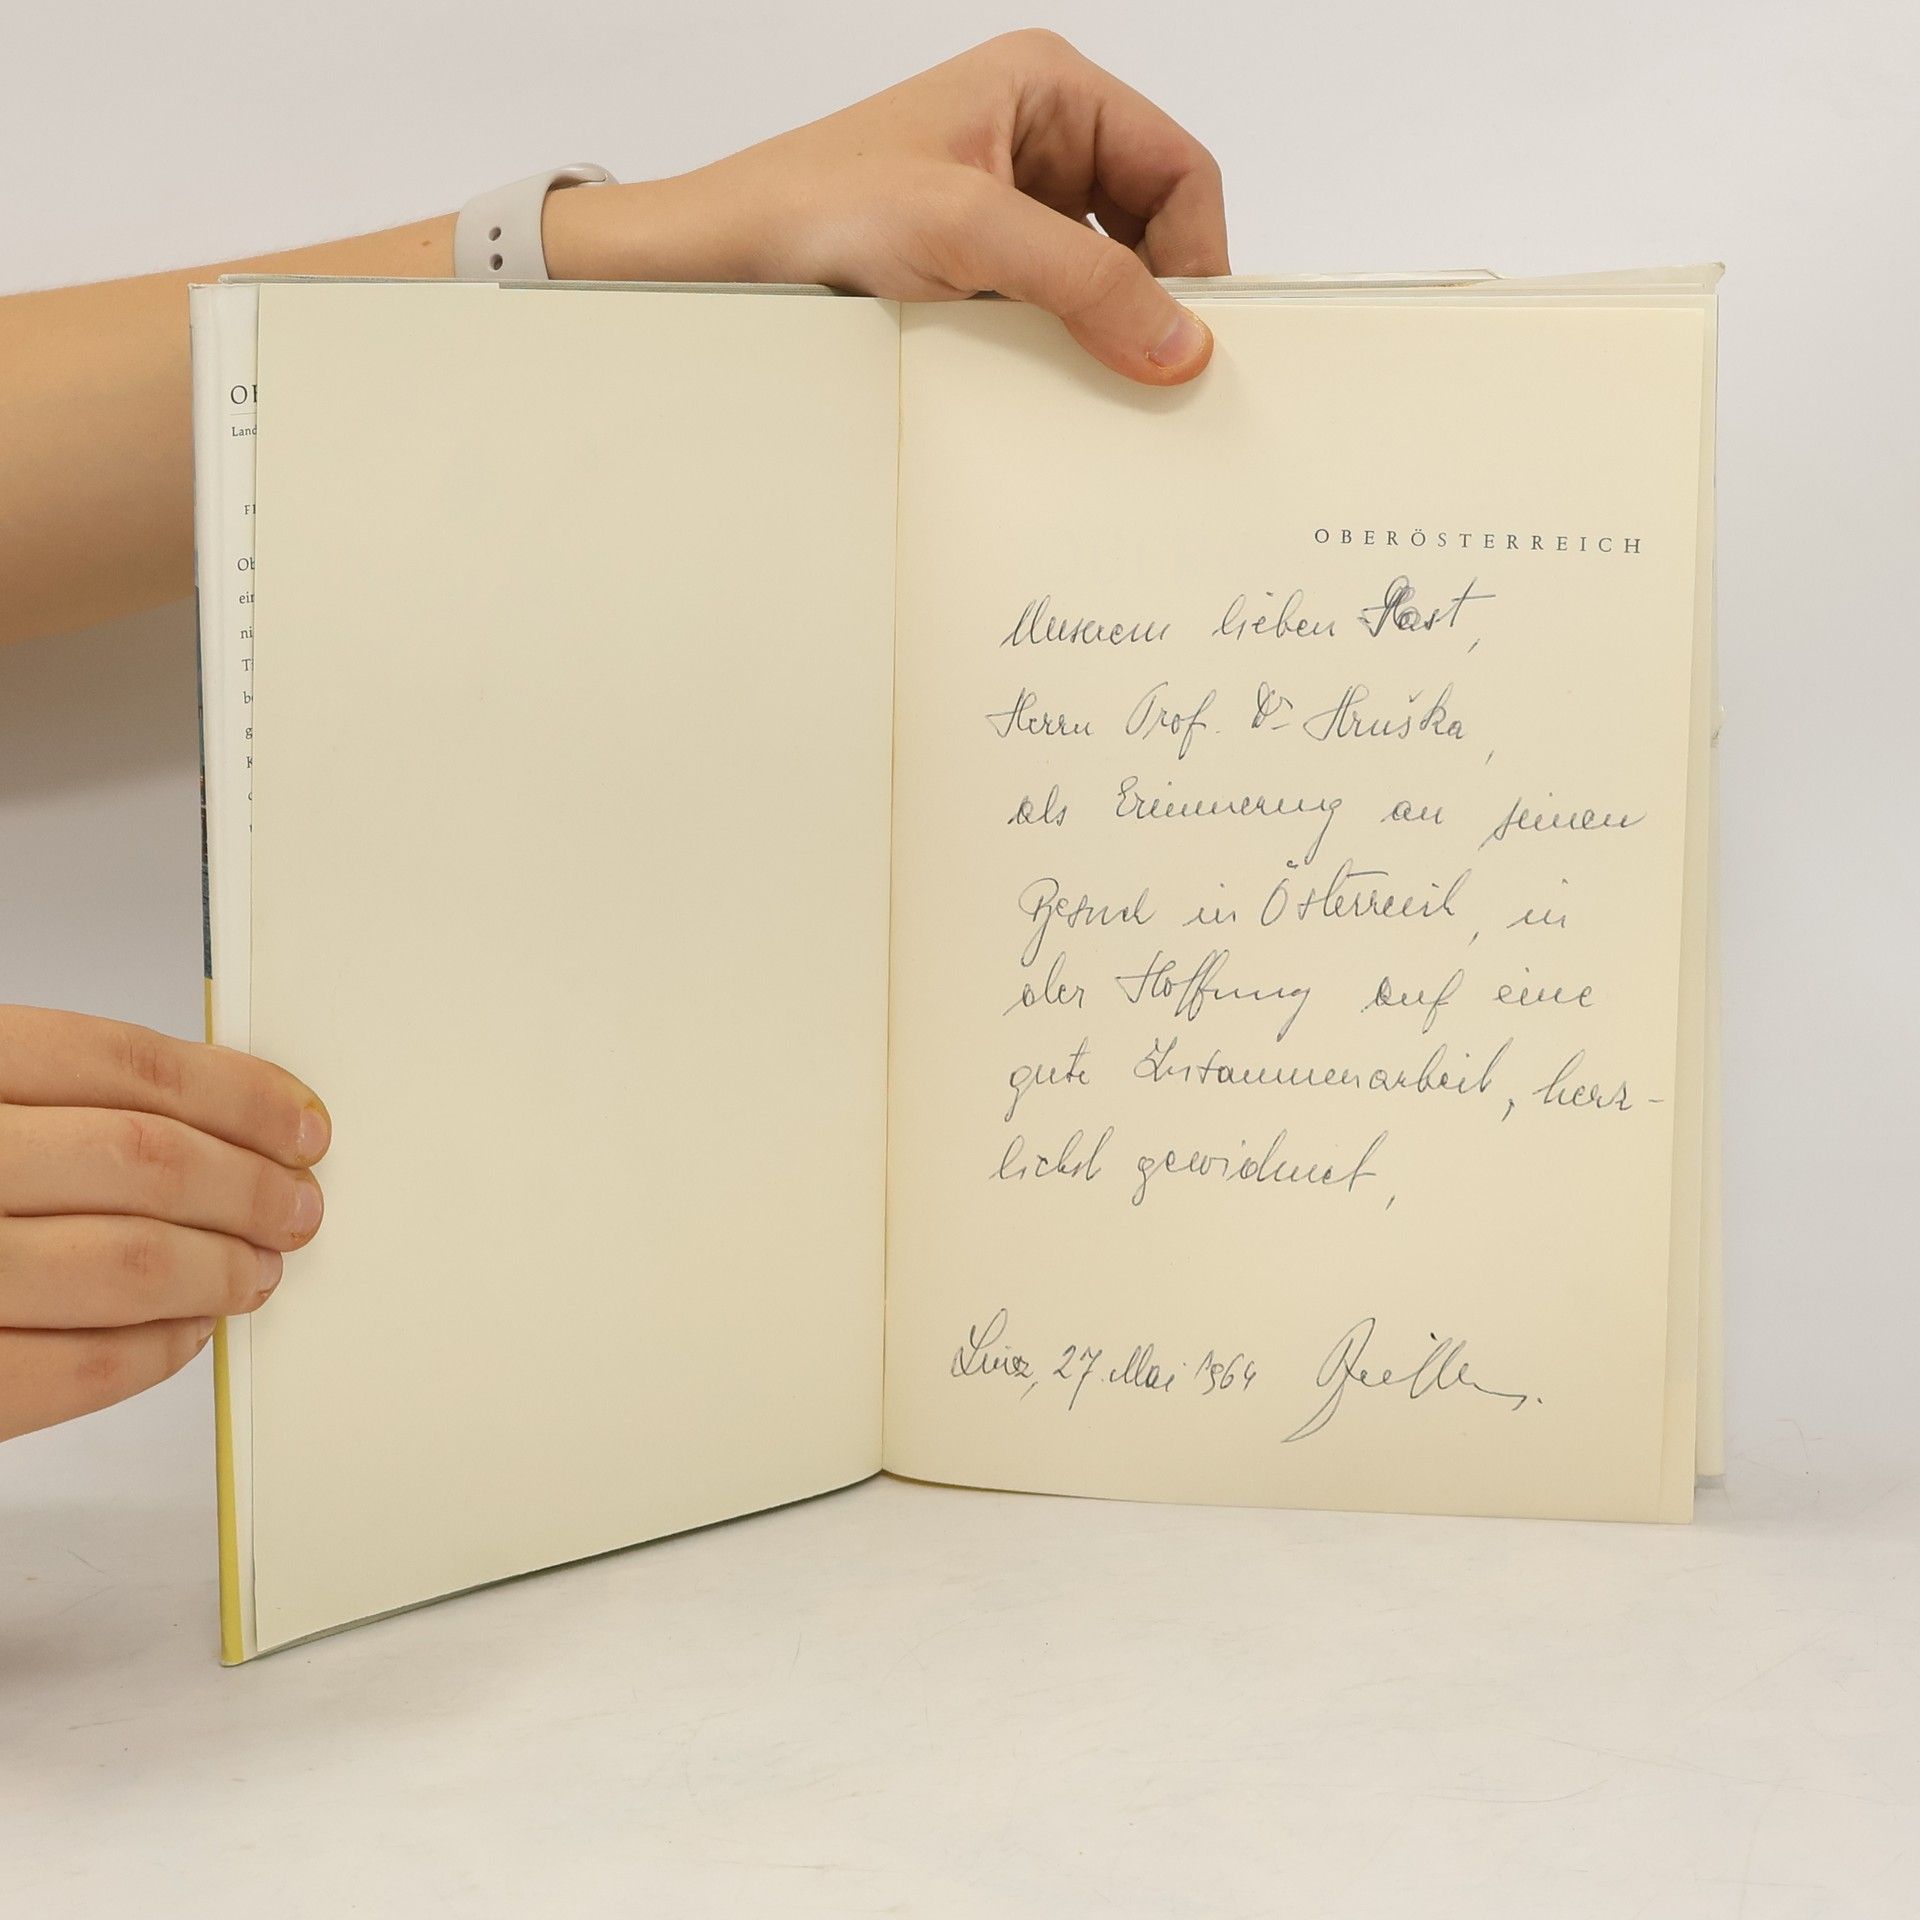 OBERÖSTERREICH
Unserem lieben Gast,
Herrn Prof. Dr Hruška,
als Erinnerung an seinen
Besuch in Österreich, in
der Hoffnung auf eine
gute Zusammenarbeit, herz-
lichst gewidmet,
Linz, 27. Mai 1964
Land
Ob
ein
ni